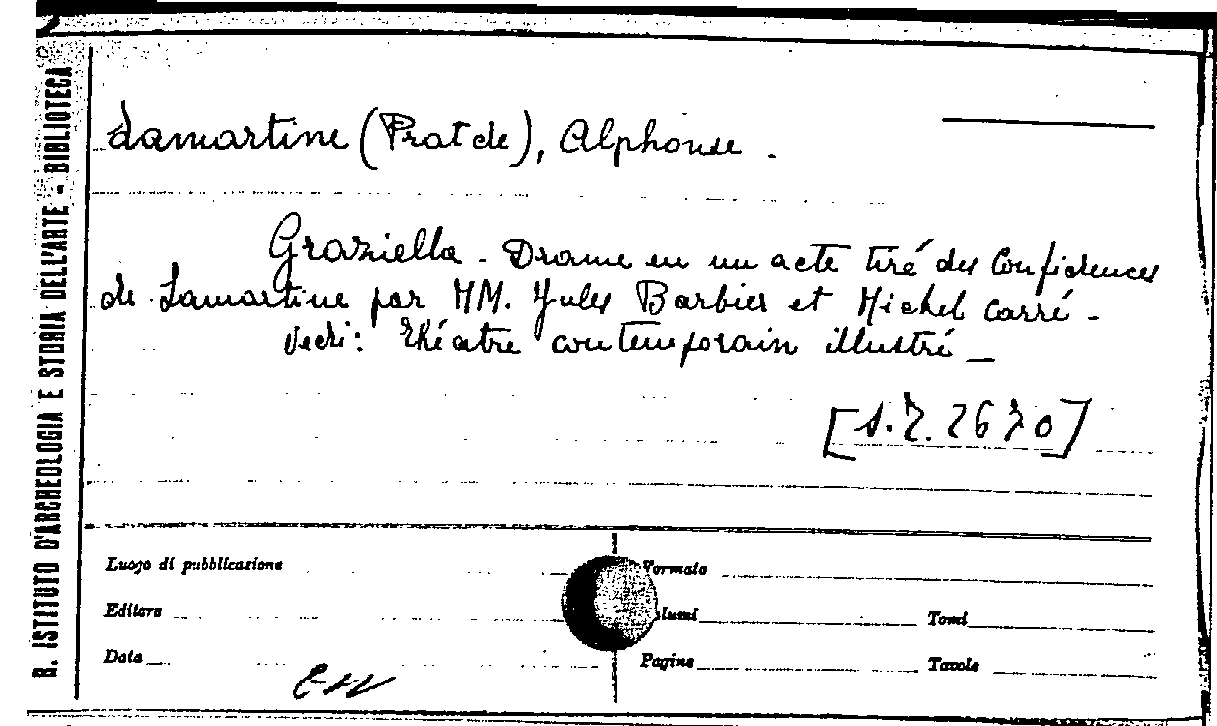 R. ISTITUTO D'ARCHEOLOGIA E STORIA DELL'ARTE - BIBLIOTECA
Lamartine (Prat de), Alphonse.
Graziella - Drame en un acte tiré des Confidences
de Lamartine par MM. Jules Barbier et Michel Carré -
Vedi: Théatre contemporain illustré -
[S.Z. 2670]
Luogo di pubblicazione
Formato
Editore
Volumi
Tomi
Data
Pagine
Tavole